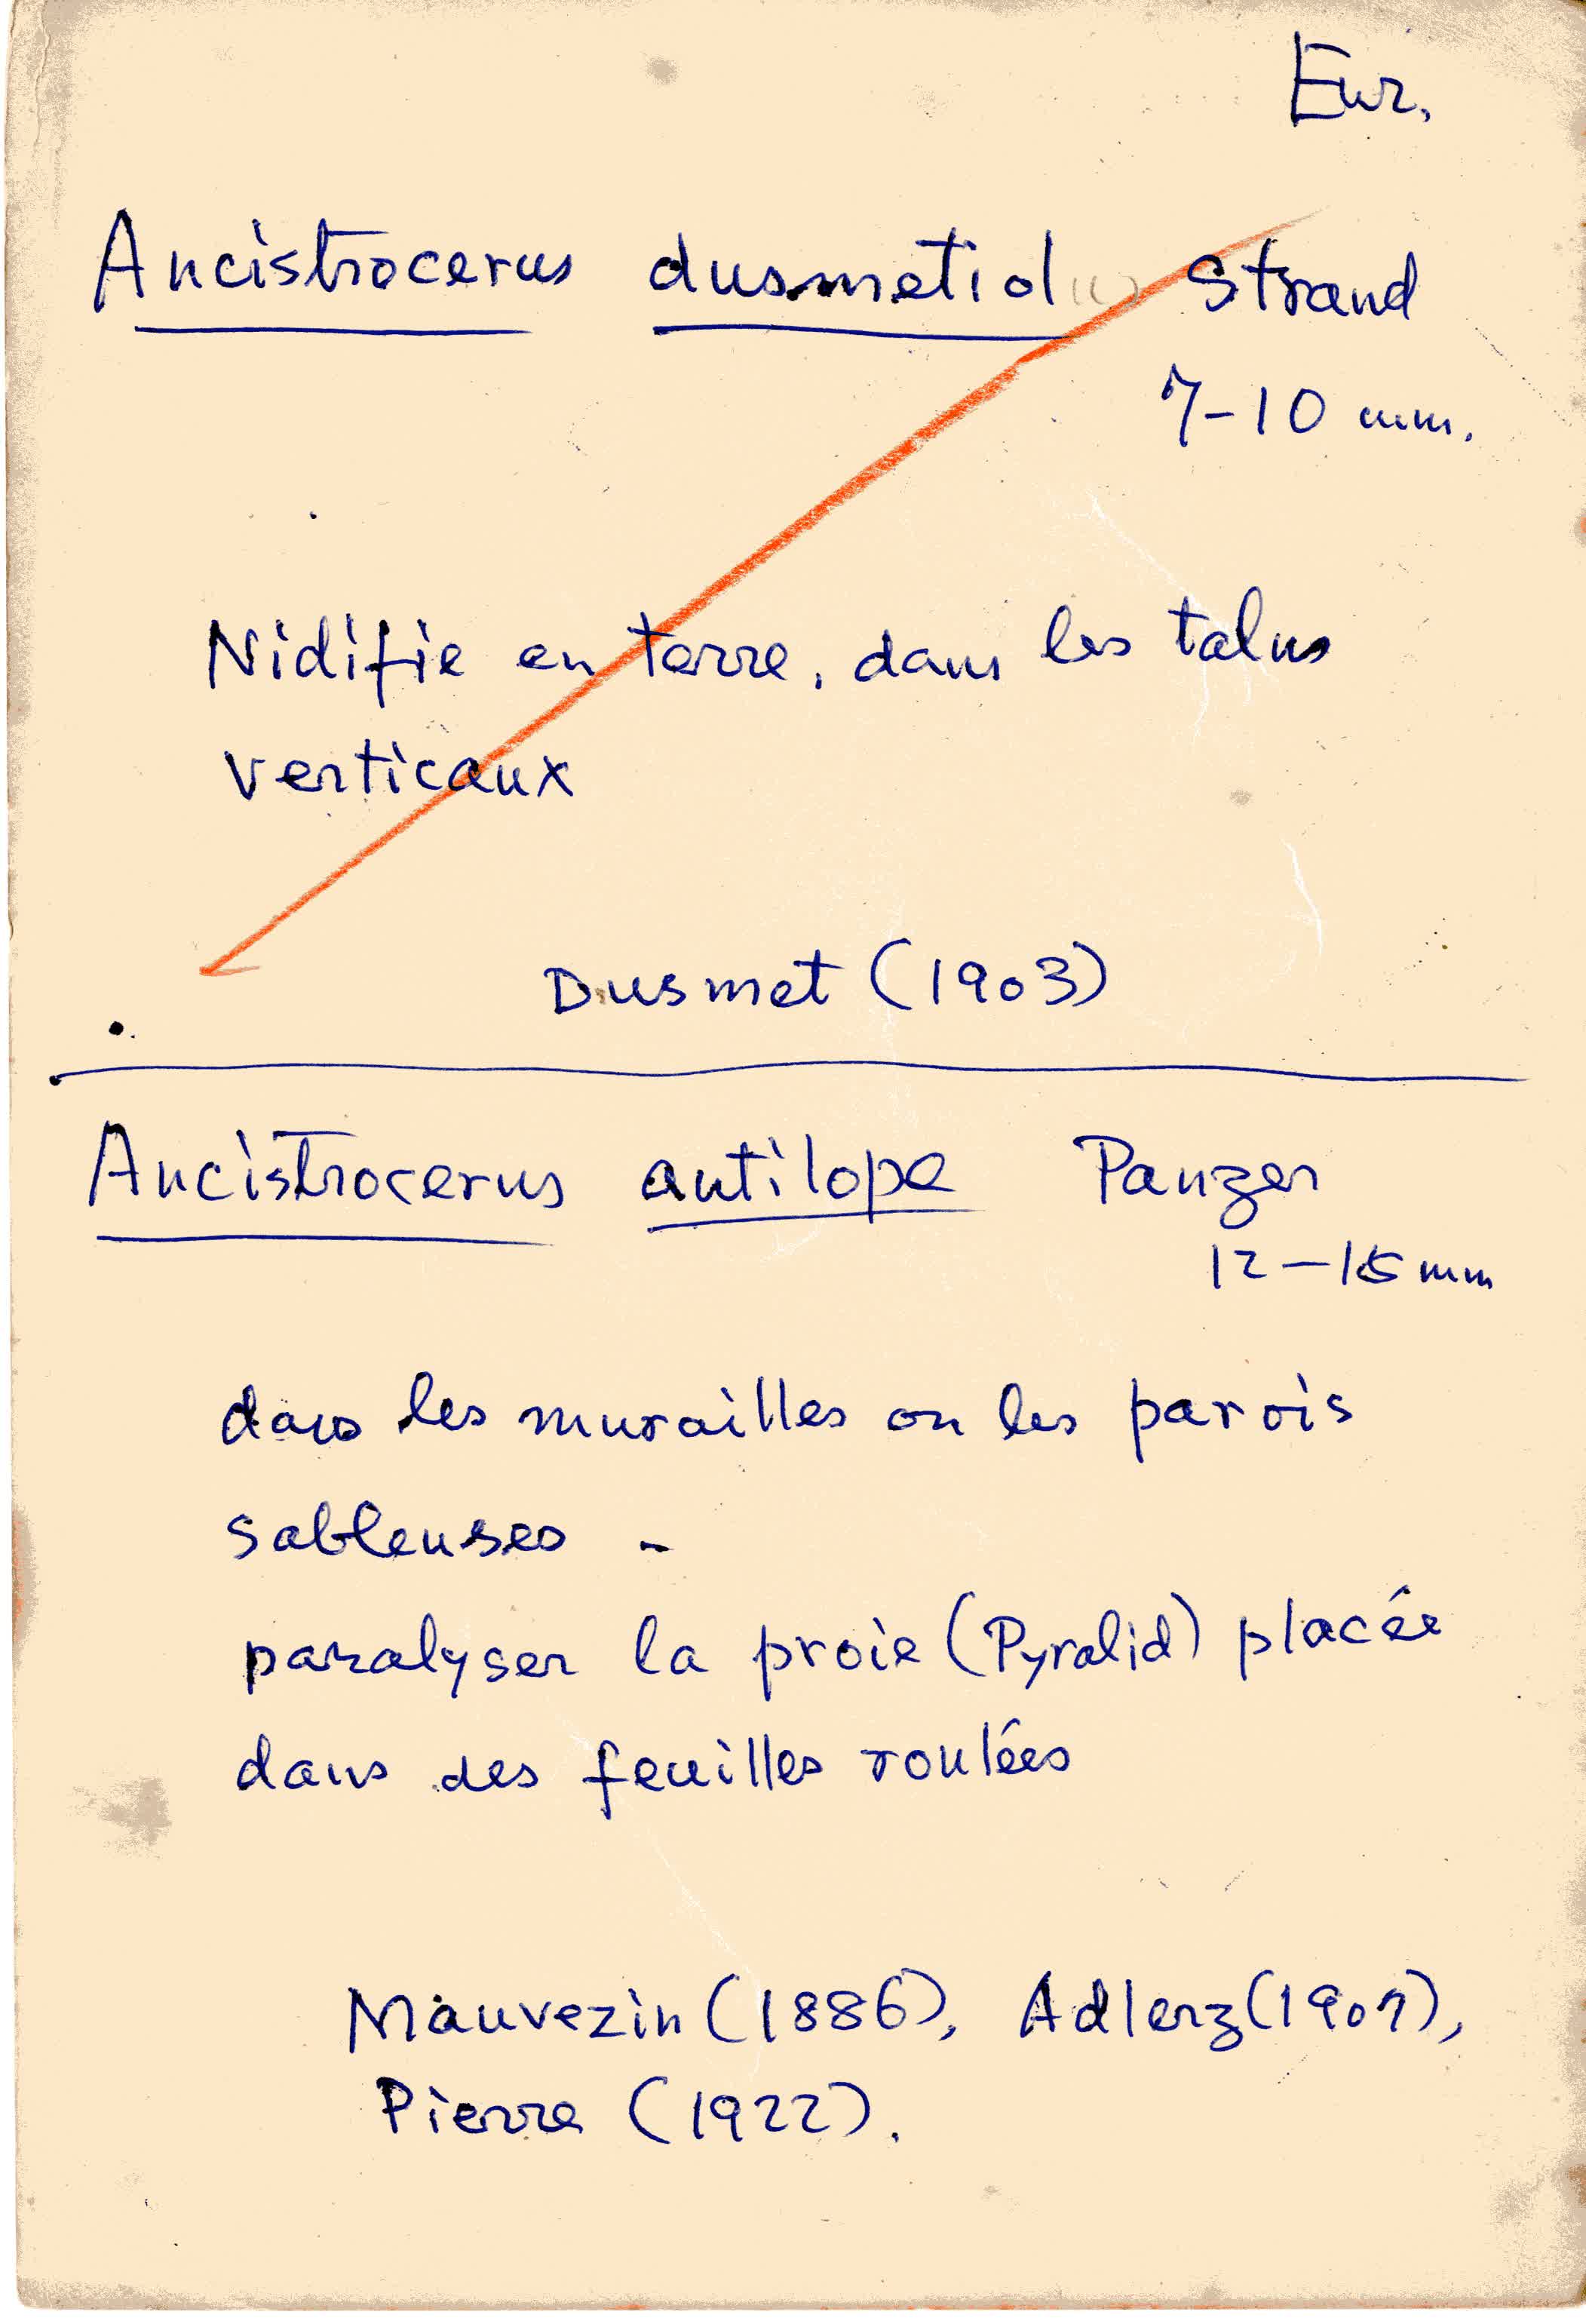 Eur.
Ancistrocerus dusmetiolus Strand
7-10 mm.
Nidifie en terre, dans les talus
verticaux
Dusmet (1903)
Ancistrocerus antilope Panzer
12-15 mm
dans les murailles ou les parois
sableuses -
paralyser la proie (Pyralid) placée
dans des feuilles roulées
Mauvezin (1886), Adlerz (1907),
Pierre (1922).